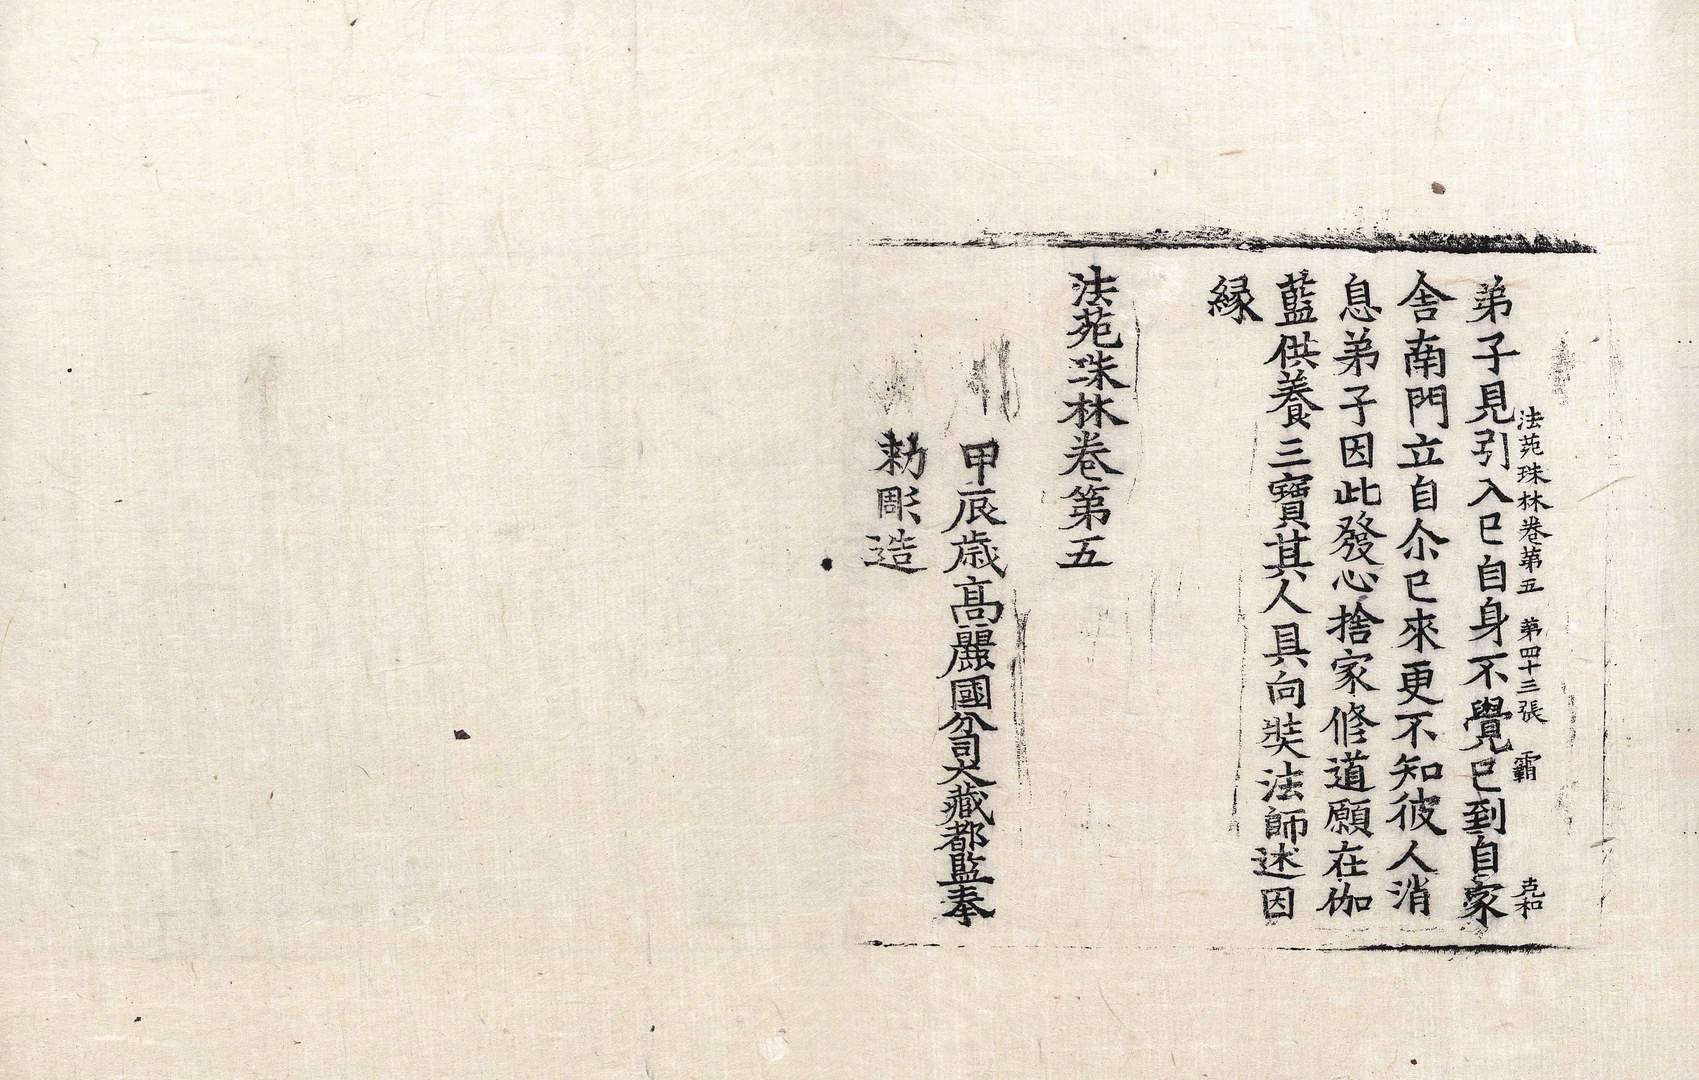 法苑珠林卷第五　第四十三張　霸　克和
弟子見引入已自身不覺已到自家
舍南門立自尒已來更不知彼人消
息弟子因此發心捨家修道願在伽
藍供養三寶其人具向奘法師述因
縁
法苑珠林卷第五
甲辰歲高麗國分司大藏都監奉
勑彫造